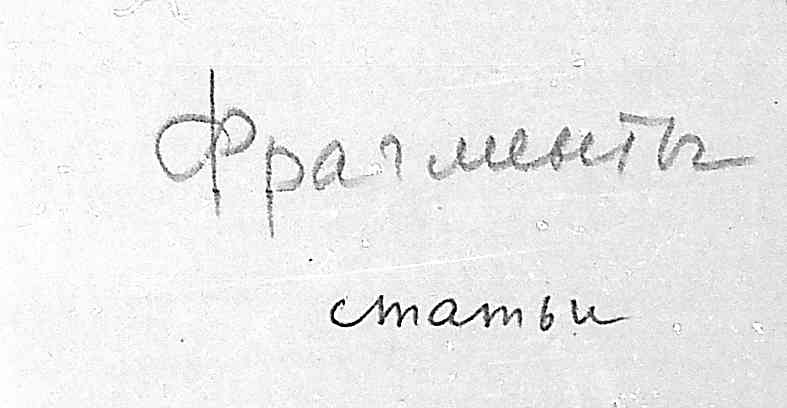 Фрагменты
статьи